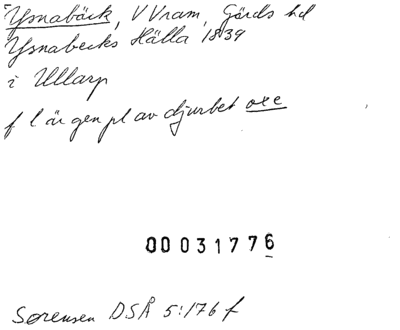 Ysnabäck, V Vram, Gärds hd
Ysnabecks Hälla 1839
i Ullarp
f l är gen pl av djurbet oxe
00031776
Sørensen DSÅ 5:176 f